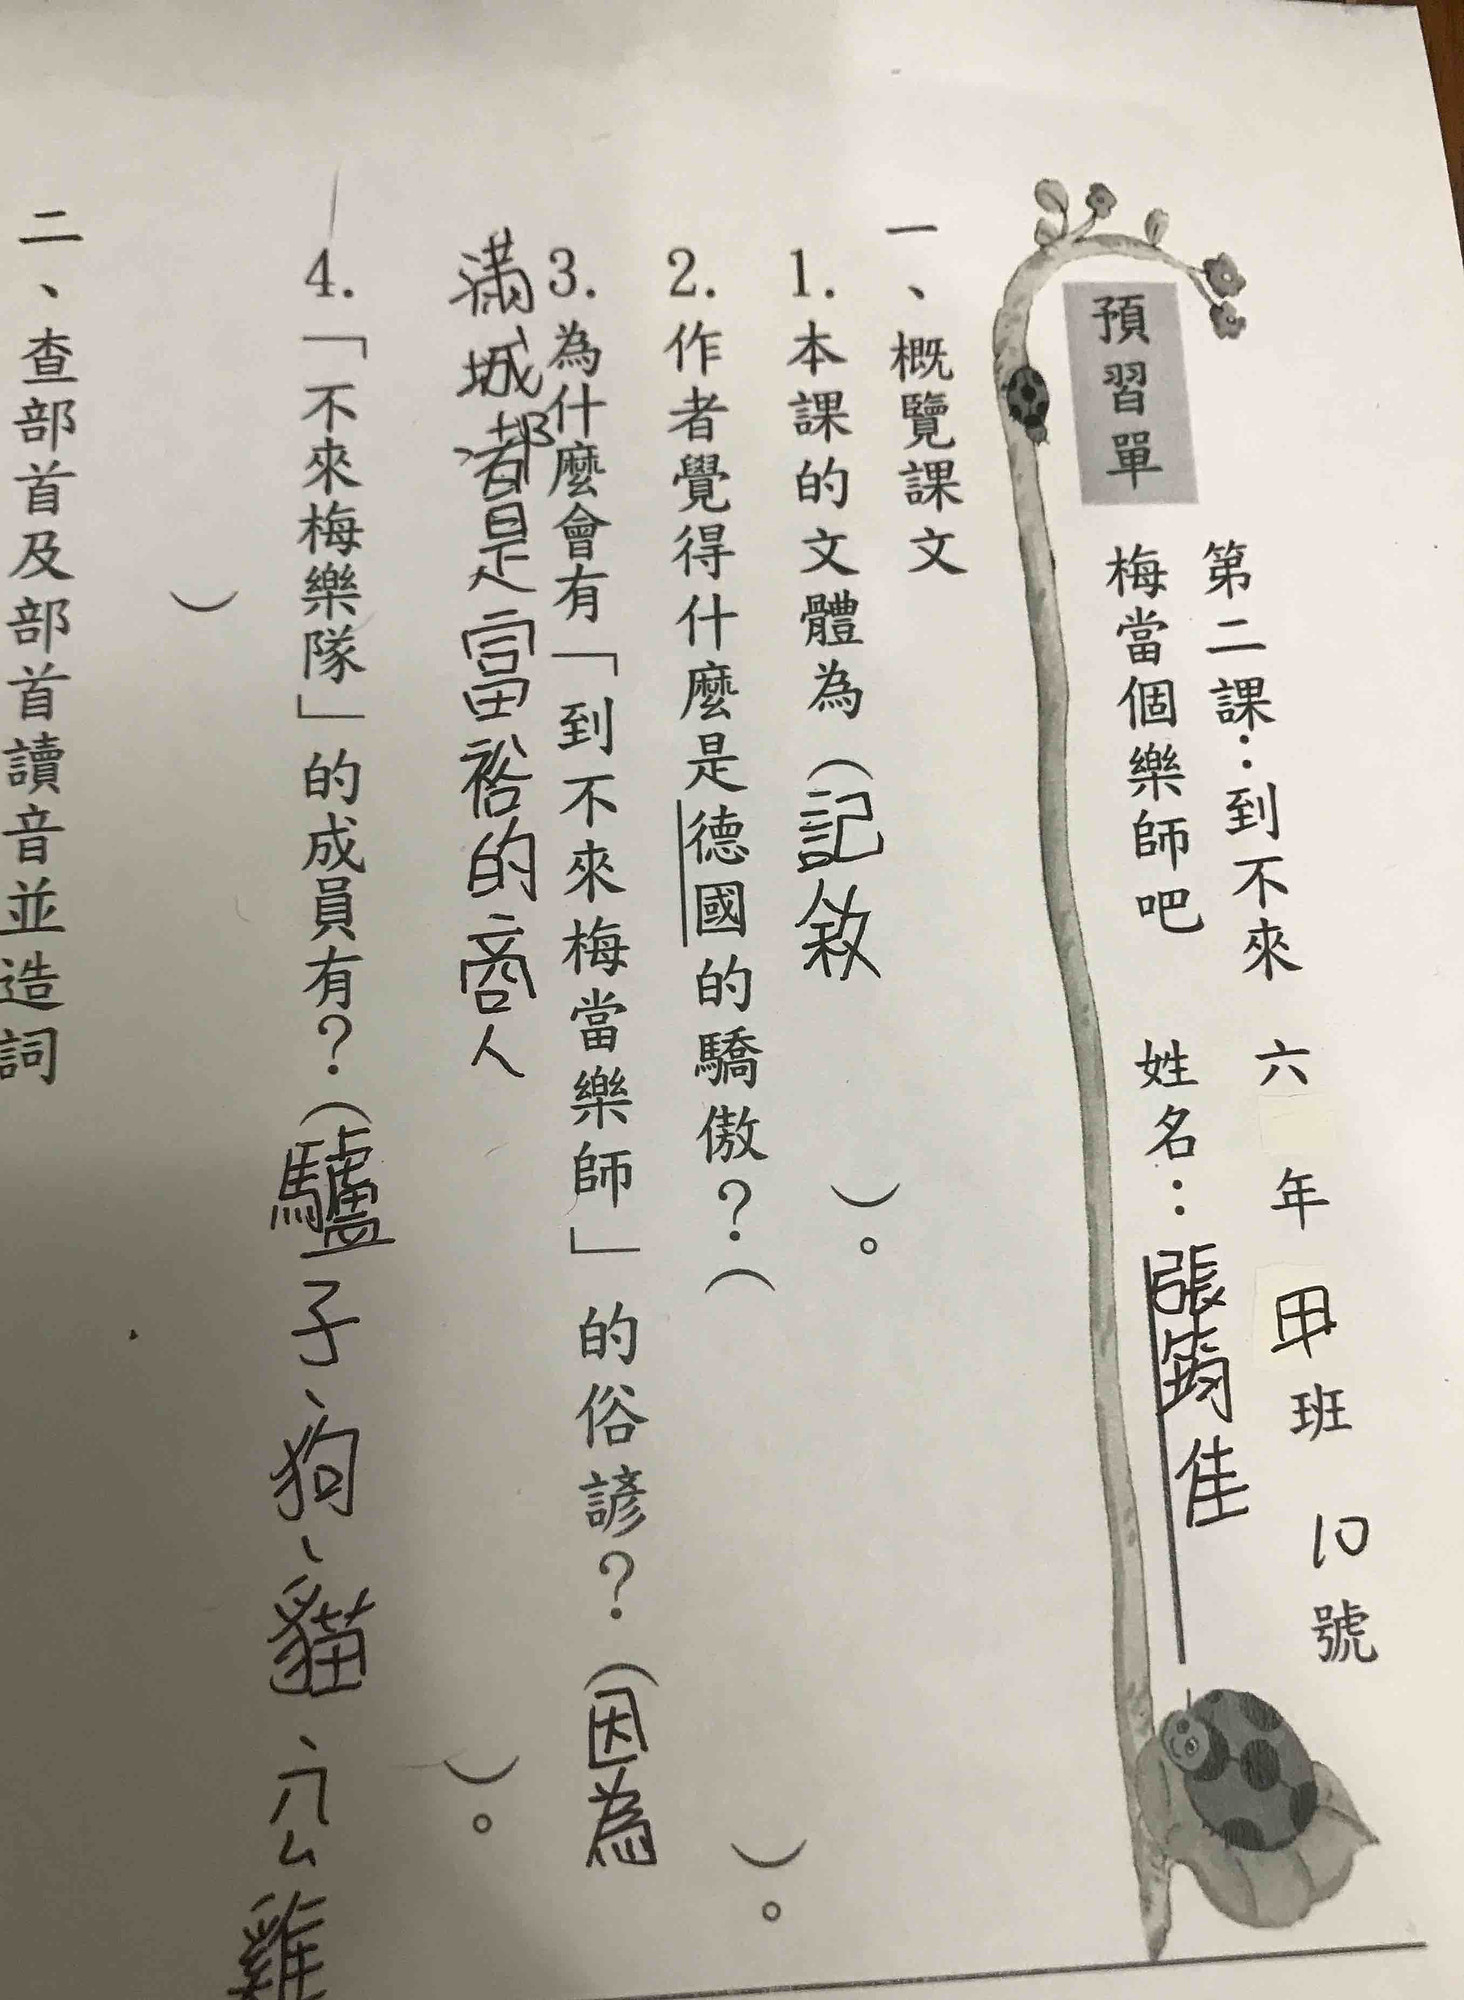 預習單
第二課：到不來
梅當個樂師吧
六年甲班10號
姓名：張筠佳
一、概覽課文
1.本課的文體為（記敘）。
2.作者覺得什麼是德國的驕傲？（）。
3.為什麼會有「到不來梅當樂師」的俗諺？（因為
滿城都是富裕的商人）。
4.「不來梅樂隊」的成員有？（驢子、狗、貓、公雞
）
二、查部首及部首讀音並造詞